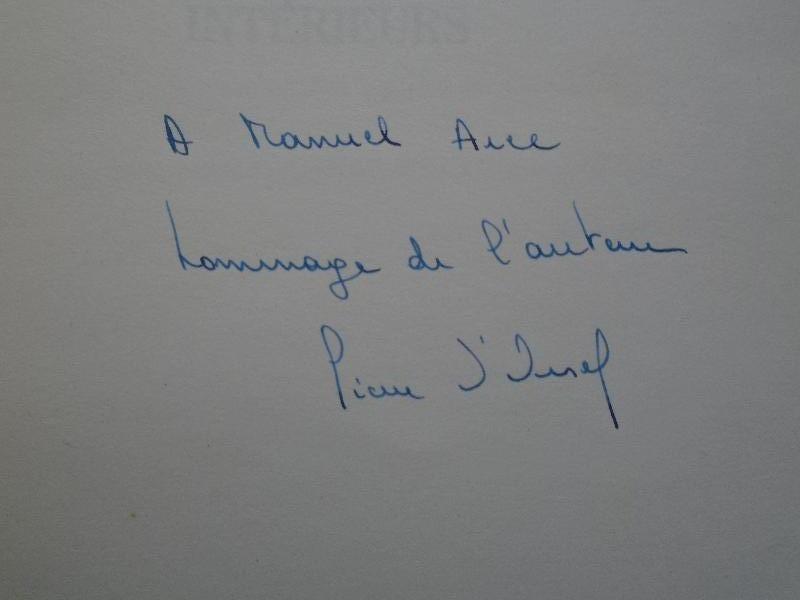 INTÉRIEURS
A Manuel Arce
hommage de l'auteur
Pierre